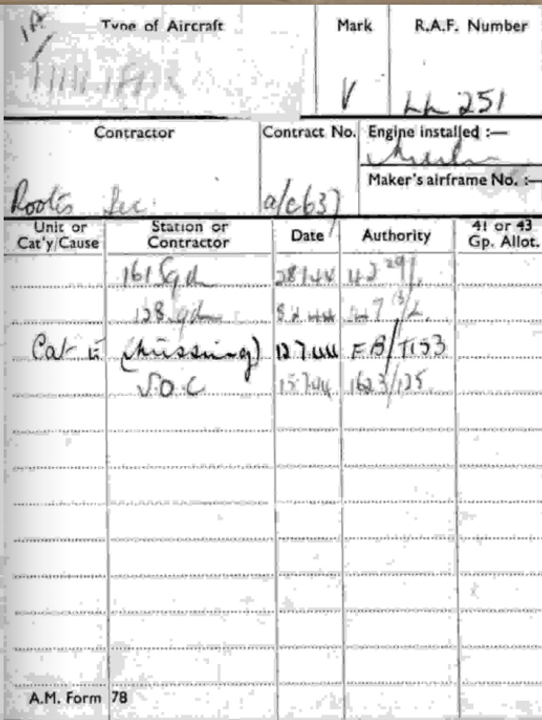 Type of Aircraft
Mark
R.A.F. Number
HALIFAX
V
LL 251
Contractor
Contract No.
Engine installed :—
Merlin
Maker's airframe No. :—
Rootes Sec.
a/c637
Unit or Cat'y/Cause
Station or Contractor
Date
Authority
41 or 43 Gp. Allot.
161 Sqd 28 1 44 42
8 2 44 47
Cat E (Missing) 12 7 44 FB/T153
S.O.C 15 7 44 1623/125
A.M. Form 78